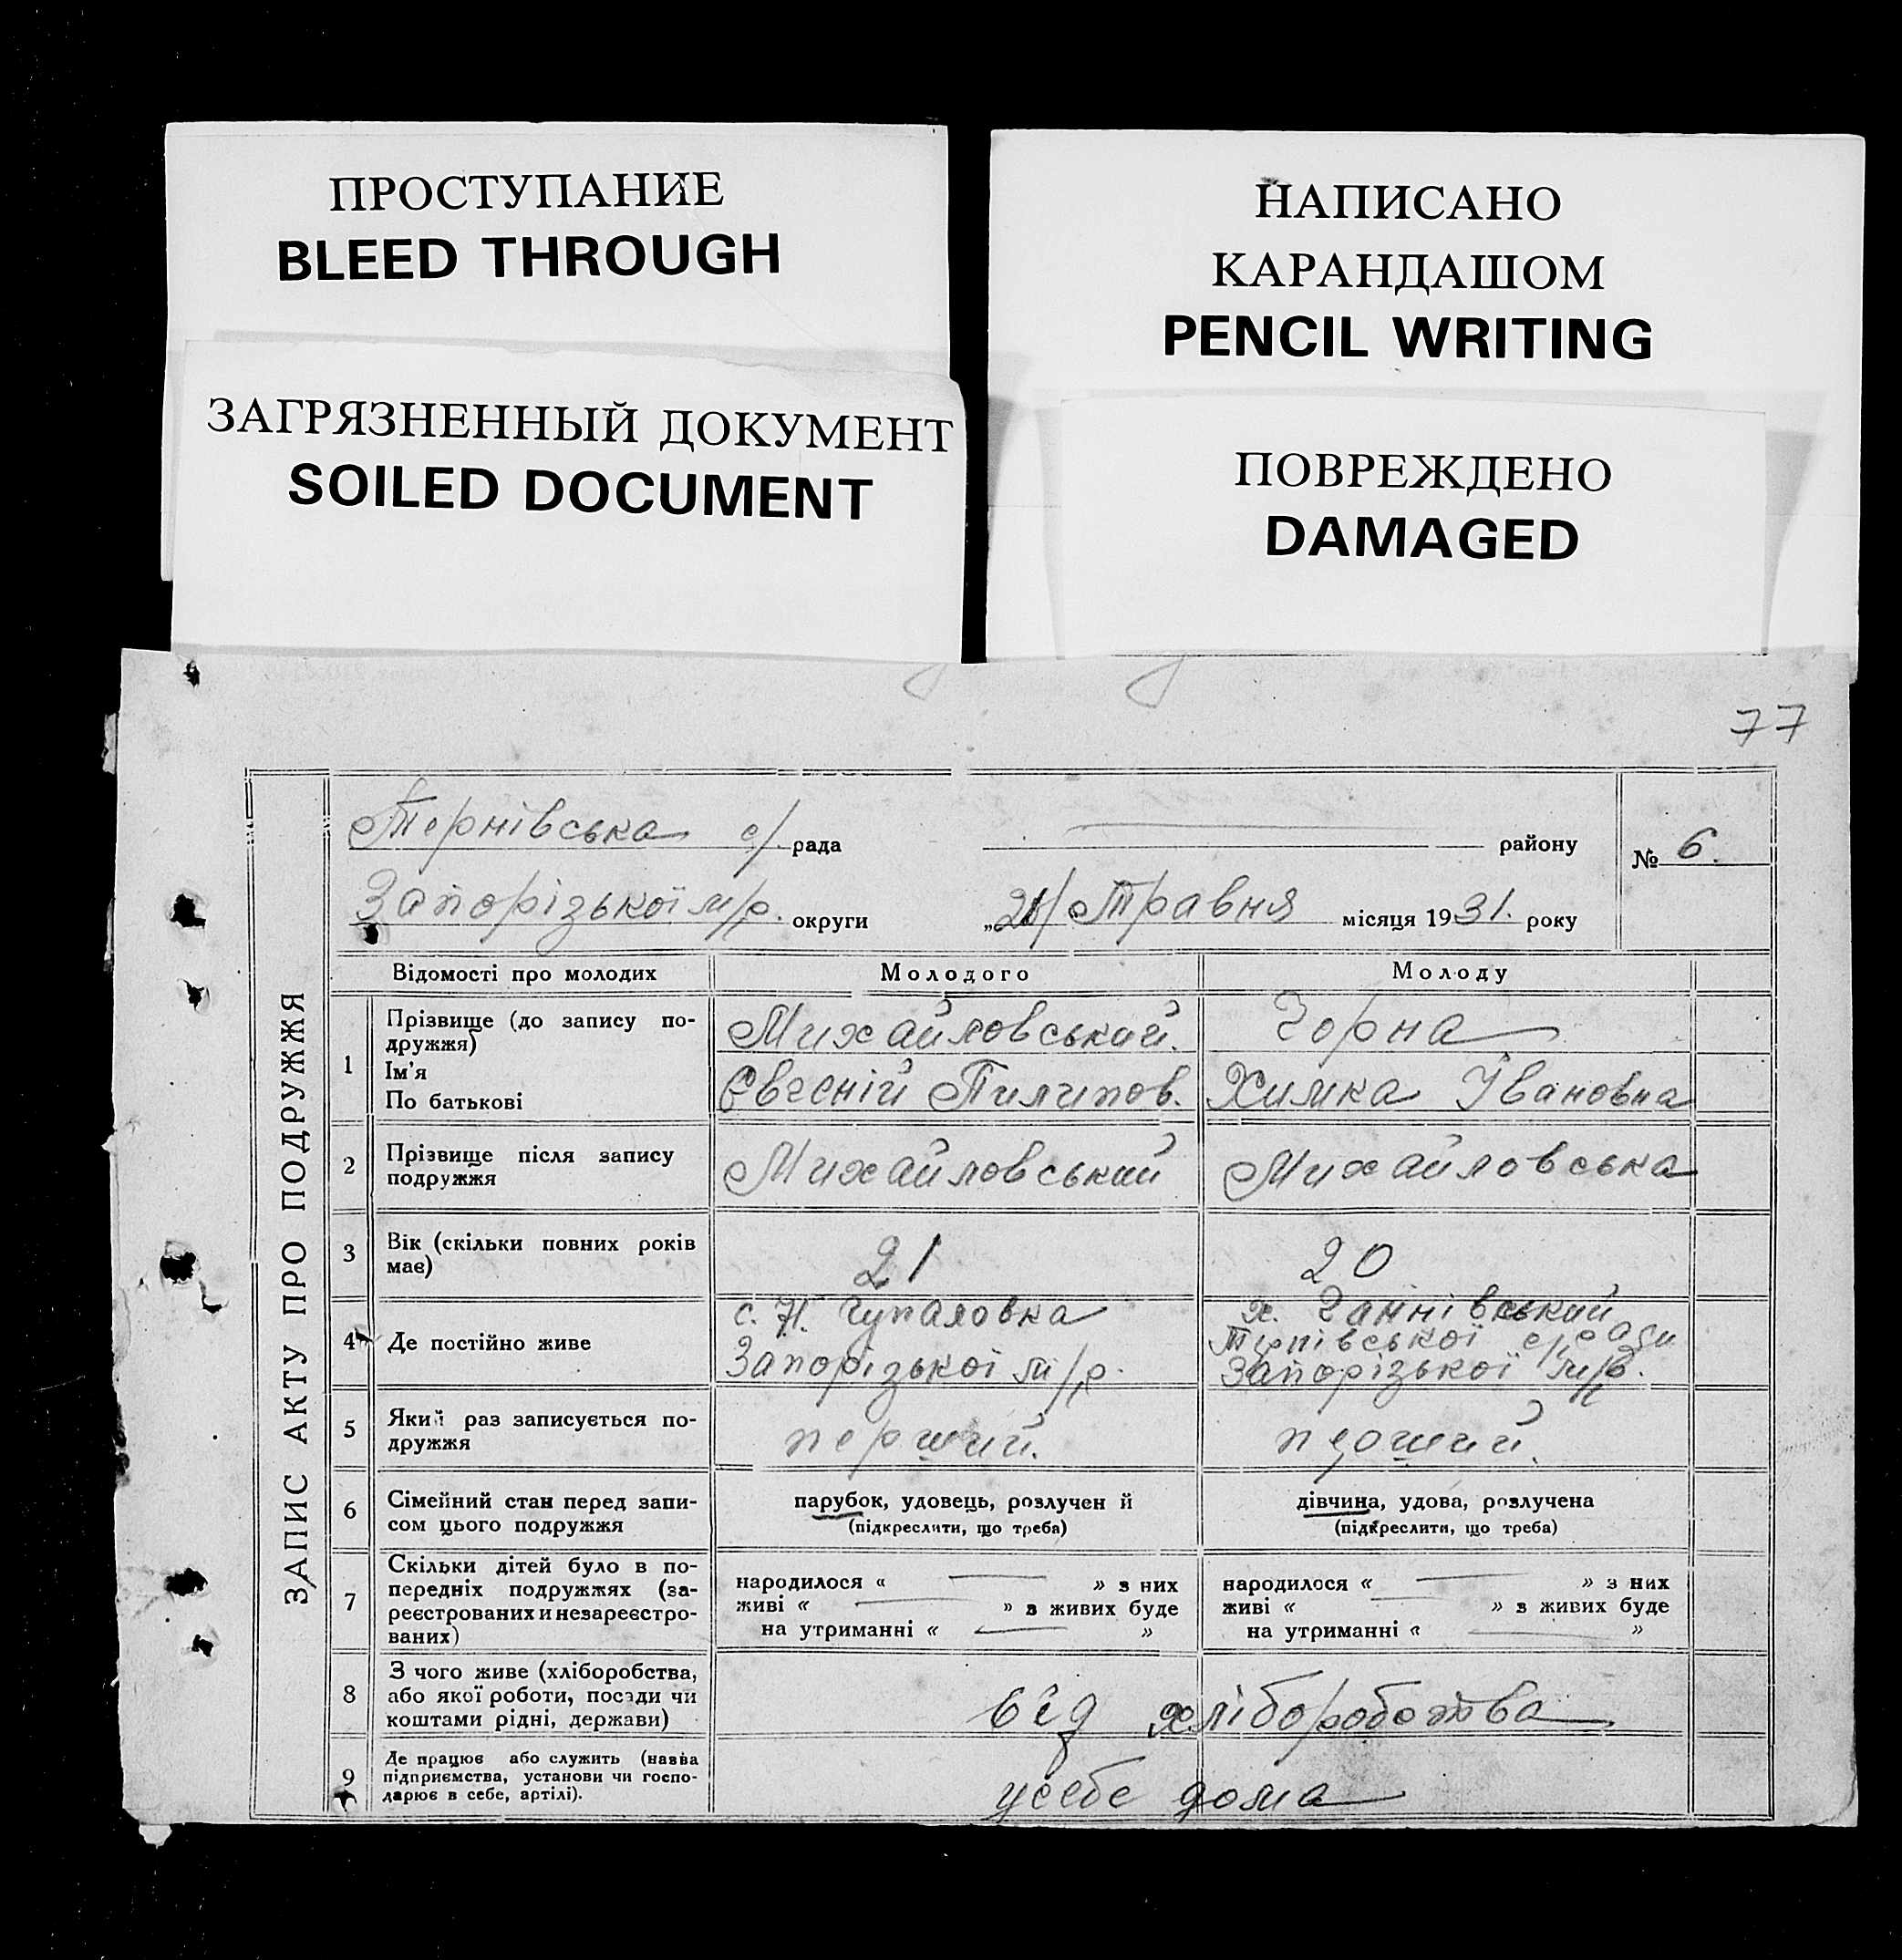 ПРОСТУПАНИЕ
BLEED THROUGH
НАПИСАНО
КАРАНДАШОМ
PENCIL WRITING
ЗАГРЯЗНЕННЫЙ ДОКУМЕНТ
SOILED DOCUMENT
ПОВРЕЖДЕНО
DAMAGED
77
ЗАПИС АКТУ ПРО ПОДРУЖЖЯ
Тернівська с/рада району № 6.
Запорізької м/р. округи „21/ Травня місяця 1931. року
Відомості про молодих Молодого Молоду
1 Прізвище (до запису по-
дружжя)
Ім'я
По батькові
Михайловський.
Євгеній Пилипов.
Чорна
Химка Івановна
2 Прізвище після запису
подружжя
Михайловський Михайловська
3 Вік (скільки повних років
має)
21 20
4 Де постійно живе
с. Н. Гупаловка
Запорізької м/р.
х. Ганнівський
Тернівської с/ради
Запорізької м/р.
5 Який раз записується по-
дружжя
перший. перший.
6 Сімейний стан перед запи-
сом цього подружжя
парубок, удовець, розлучен й
(підкреслити, що треба)
дівчина, удова, розлучена
(підкреслити, що треба)
7 Скільки дітей було в по-
передніх подружжях (за-
реєстрованих и незареєстро-
ваних)
народилося « — » з них
живі « — » з живих буде
на утриманні « — »
народилося « — » з них
живі « — » з живих буде
на утриманні « — »
8 З чого живе (хліборобства,
або якої роботи, посади чи
коштами рідні, держави)
від хліборобства
9 Де працює або служить (назва
підприємства, установи чи госпо-
дарює в себе, артілі).
усебе дома